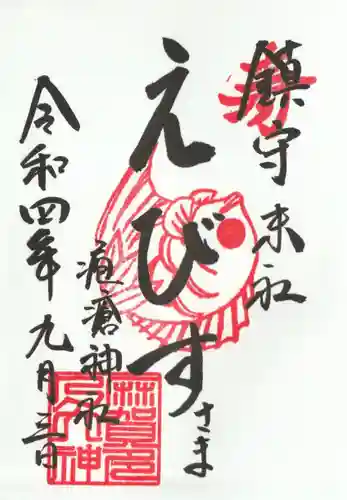 鎮守末社
えびすさま
疱瘡神社
令和四年九月三日